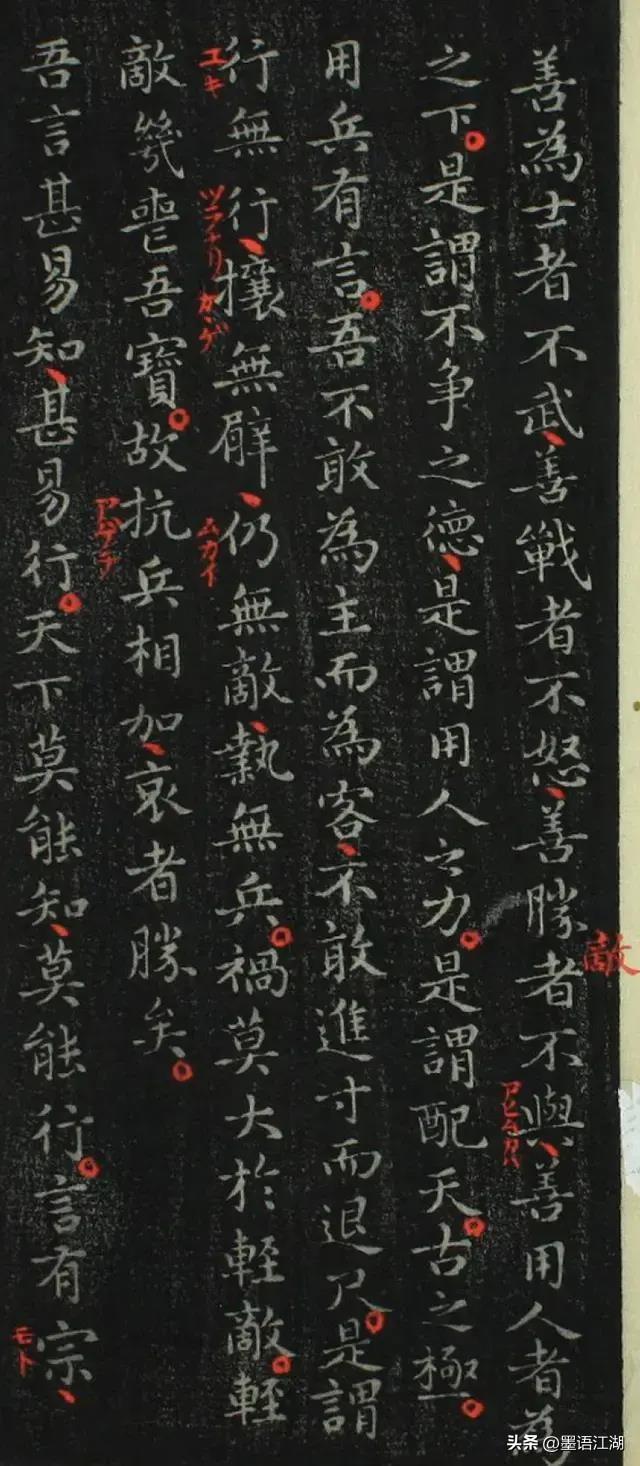 敵
善為士者不武、善戰者不怒、善勝者不與、善用人者為
アヒムカハ
之下。是謂不争之德、是謂用人之力。是謂配天。古之極。
用兵有言。吾不敢為主而為客、不敢進寸而退尺。是謂
行無行、攘無臂、仍無敵、執無兵。禍莫大於輕敵。輕
ユキ
ツラナリ
カヽゲ
ムカイ
敵幾喪吾寶。故抗兵相加、哀者勝矣。
アゲテ
吾言甚易知、甚易行。天下莫能知、莫能行。言有宗、
モト
头条 @墨语江湖